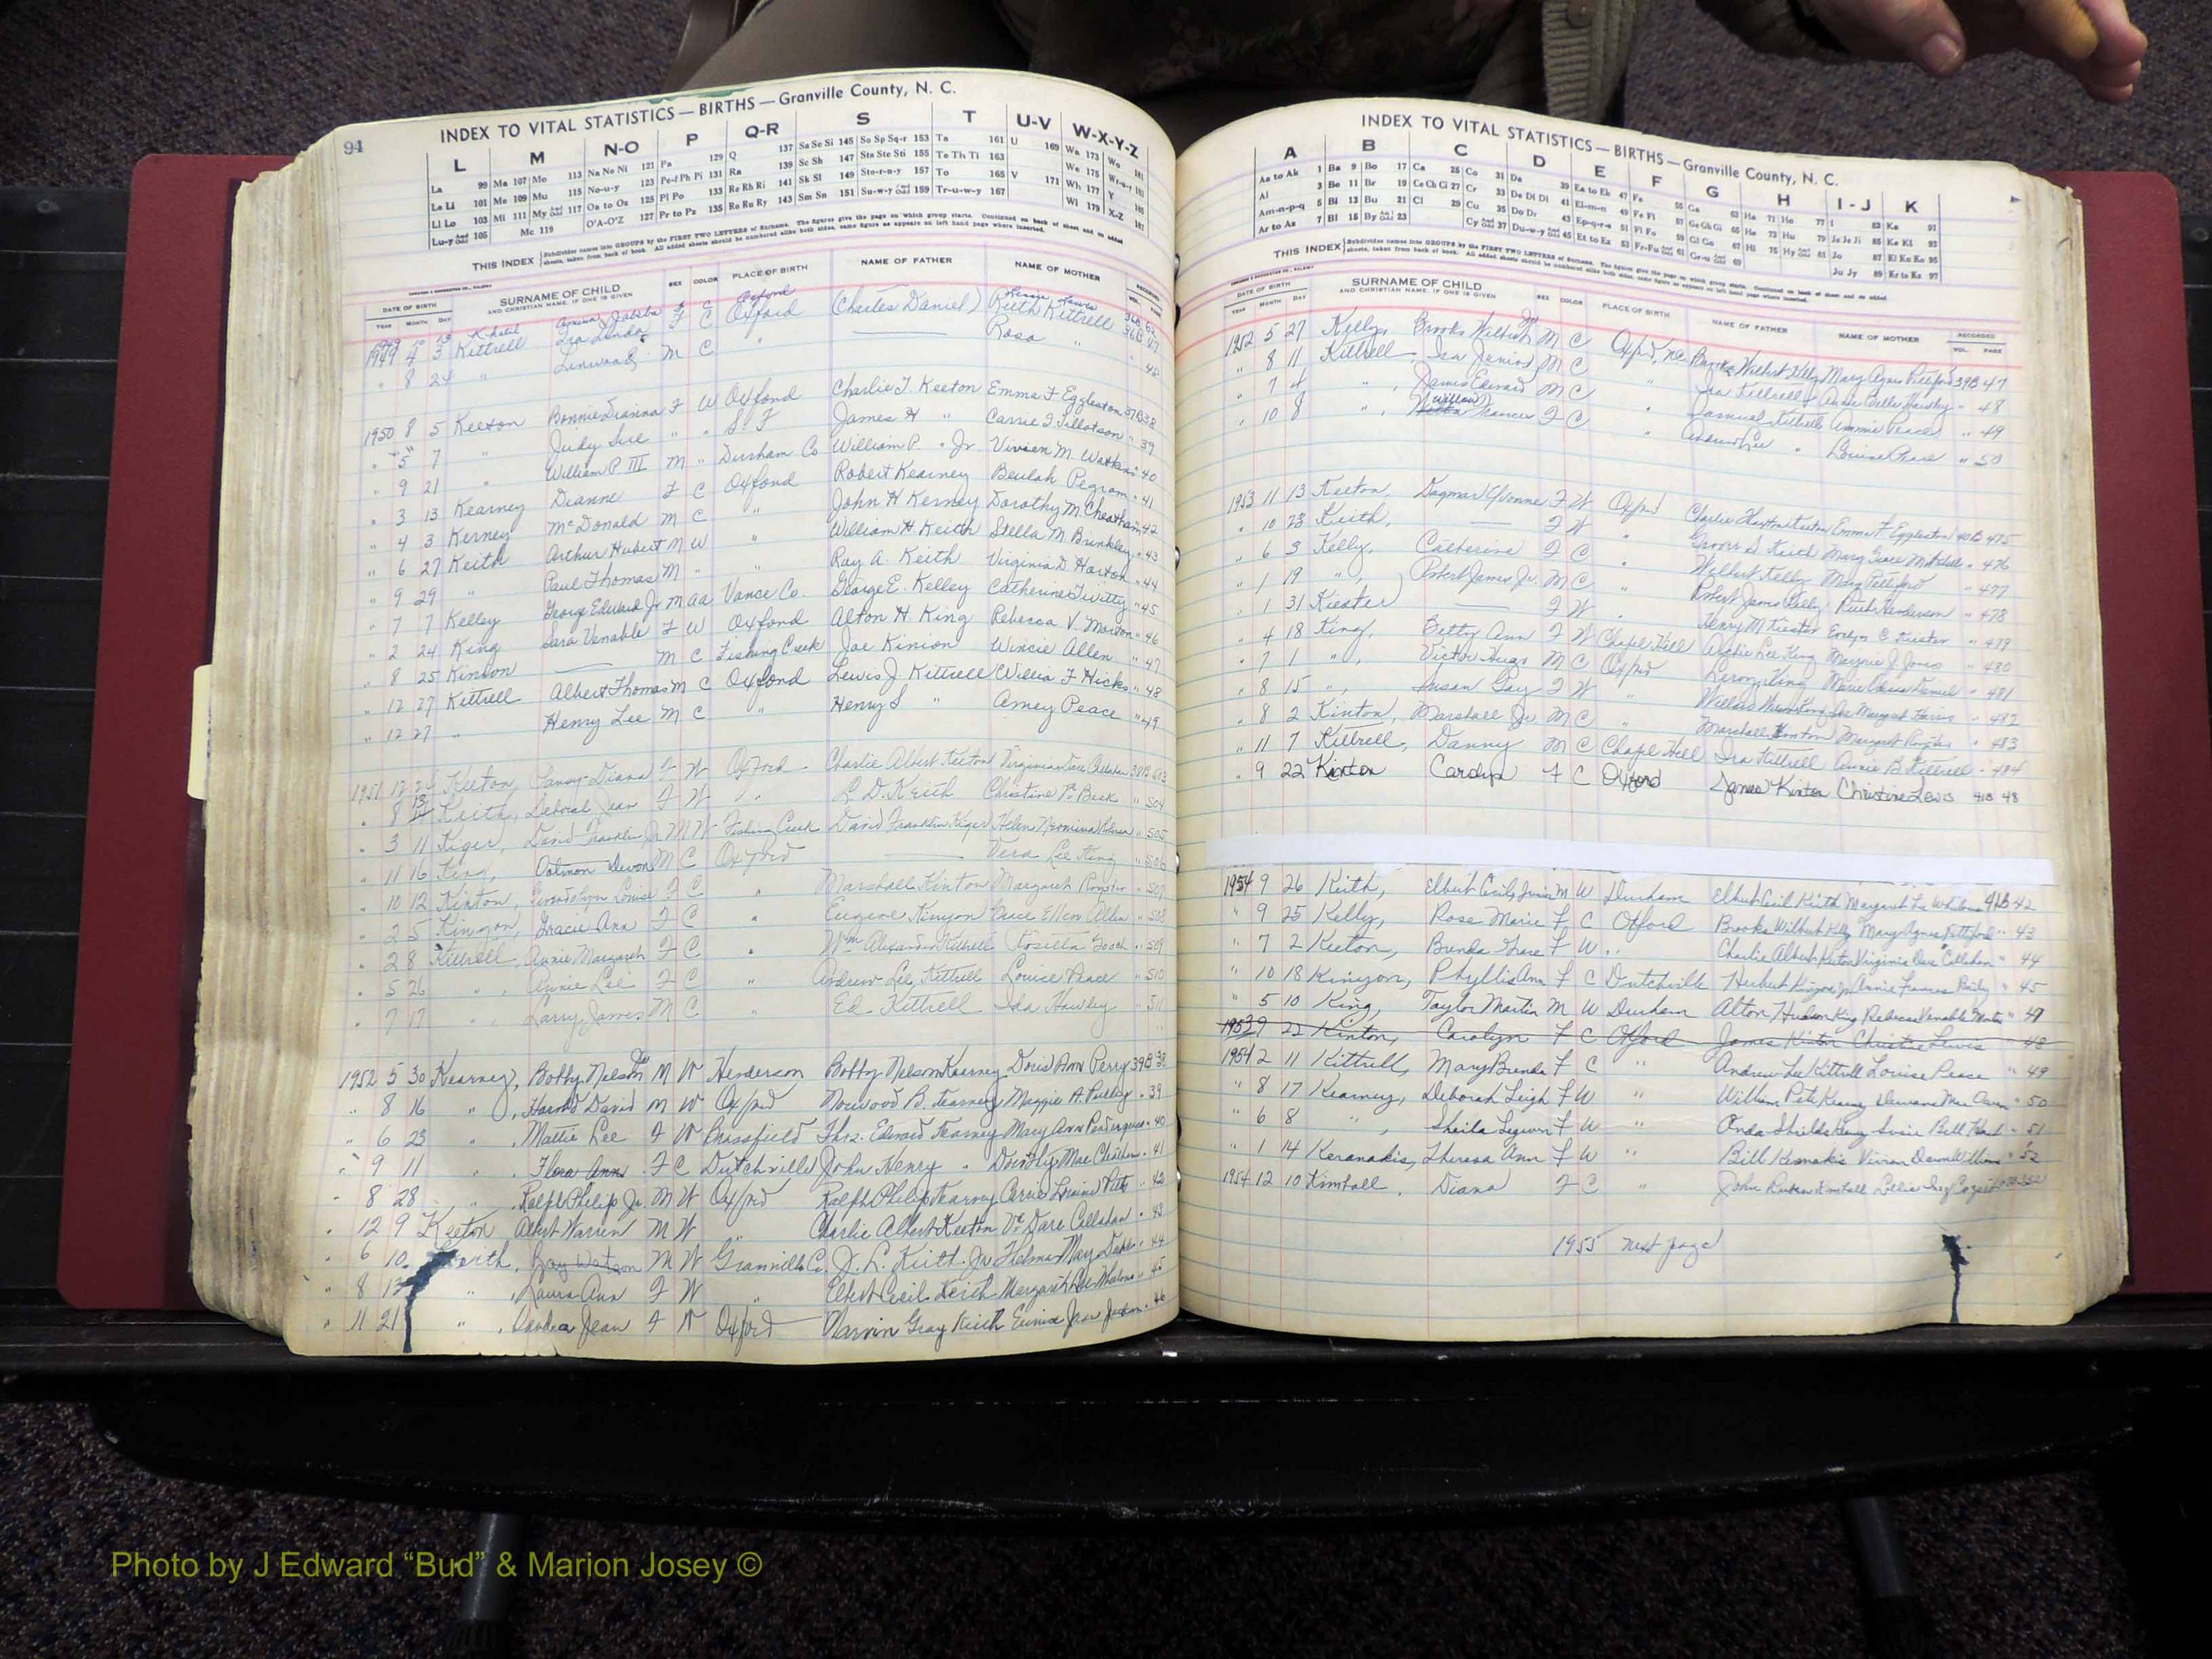 94
INDEX TO VITAL STATISTICS — BIRTHS — Granville County, N. C.
L M N-O P Q-R S T U-V W-X-Y-Z
La 99 Ma 107 Mo 113 Na Ne Ni 121 Pa 129 Q 137 Sa Se Si 145 So Sp Sq-r 153 Ta 161 U 169 Wa 173 Wo 181
Le Li 101 Me 109 Mu 115 No-u-y 123 Pe-f Ph Pi 131 Ra 139 Sc Sh 147 Sta Ste Sti 155 Te Th Ti 163 We 175 Wr-u-y 183
Ll Lo 103 Mi 111 My And Odd 117 Oa to Oz 125 Pl Po 133 Re Rh Ri 141 Sk Sl 149 Sto-r-u-y 157 To 165 V 171 Wh 177 Y 185
Lu-y And Odd 105 Mc 119 O'A-O'Z 127 Pr to Pz 135 Ro Ru Ry 143 Sm Sn 151 Su-w-y And Odd 159 Tr-u-w-y 167 Wi 179 X-Z 187
THIS INDEX Subdivides names into GROUPS by the FIRST TWO LETTERS of Surname. The figures give the page on which group starts. Continued on back of sheet and on added
sheets, taken from back of book. All added sheets should be numbered alike both sides, same figure as appears on left hand page where inserted.
DATE OF BIRTH SURNAME OF CHILD SEX COLOR PLACE OF BIRTH NAME OF FATHER NAME OF MOTHER RECORDED
YEAR MONTH DAY AND CHRISTIAN NAME, IF ONE IS GIVEN VOL. PAGE
Oxford
1949 4 3 Kittrell Linda F C Oxford (Charles Daniel) Ruth Kittrell 36B 47
" 8 24 " Linwood M C " Rosa " " 48
1950 8 5 Keeton Bonnie Dianna F W Oxford Charlie T. Keeton Emma F Eggleston 37B 38
" 5 7 " Judy Sue " " S. F James H " Carrie I. Tillotson " 39
" 9 21 " William P. III M " Durham Co William P. " Jr Vivian M. Watkins " 40
" 3 13 Kearney Dianne F C Oxford Robert Kearney Beulah Pegram " 41
" 4 3 Kerney McDonald M C " John H Kerney Dorothy M Cheatham " 42
" 6 27 Keith Arthur Hubert M W " William H Keith Stella M Brinkley " 43
" 9 29 " Paul Thomas M " " Ray A. Keith Virginia D. Horton " 44
" 7 7 Kelley George Edward Jr M aa Vance Co. George E. Kelley Catherine Twitty " 45
" 2 24 King Sara Venable F W Oxford Alton H. King Rebecca V. Morton " 46
" 8 25 Kinion M C Fishing Creek Joe Kinion Wincie Allen " 47
" 12 27 Kittrell Albert Thomas M C Oxford Lewis J. Kittrell Willia F Hicks " 48
" 12 27 " Henry Lee M C " Henry S " Amey Peace " 49
1951 12 Keeton, Diana F W Oxford Charlie Albert Keeton Virginia Dare Callahan 38B 503
" 8 Keith, Deborah Jean F W " L. D. Keith Christine P. Beck " 504
" 3 11 Kiger, David Franklin Jr. M W Fishing Creek David Franklin Kiger Helen " 505
" 11 16 King, Devon M C Oxford Vera Lee King " 506
" 10 12 Kinton, Louise F C " Marshall Kinton Margaret Royster " 507
" 2 5 Kinyon, Gracie Ann F C " Eugene Kinyon Grace Ellen Allen " 508
" 2 8 Kittrell, Annie Margaret F C " Wm. Alexander Kittrell Rosetta Gooch " 509
" 5 26 " , Annie Lee F C " Andrew Lee Kittrell Louise Peace " 510
" 7 17 " , Larry James M C " Ed. Kittrell Ida Hawley " 511
1952 5 30 Kearney, Bobby Nelson Jr M W Henderson Bobby Nelson Kearney Doris Ann Perry 39B 38
" 8 16 " , Harold David M W Oxford Norwood B. Kearney Maggie A. Pulley " 39
" 6 23 " , Mattie Lee F W Brassfield Thos. Edward Kearney Mary Ann Pendergrass " 40
" 9 11 " , Flora Ann F C Dutchville John Henry " Dorothy Mae Cheatham " 41
" 8 28 " , Ralph Philip Jr. M W Oxford Ralph Philip Kearney Carrie Pitts " 42
" 12 9 Keeton Albert Warren M W " Charlie Albert Keeton Va. Dare Callahan " 43
" 6 10 Keith, Ray Watson M W Granville Co. J. L. Keith Jr Thelma May " 44
" 8 " , Laura Ann F W " Elbert Cecil Keith Margaret " 45
" 11 21 " , Jean F W Oxford Marvin Gray Keith Eunice Jean Jackson " 46
INDEX TO VITAL STATISTICS — BIRTHS — Granville County, N. C.
A B C D E F G H I-J K
Aa to Ak 1 Ba 9 Bo 17 Ca 25 Co 31 Da 39 Ea to Ek 47 Fa 55 Ga 63 Ha 71 Ho 77 I 83 Ka 91
Al 3 Be 11 Br 19 Ce Ch Ci 27 Cr 33 De Di Dl 41 El-m-n 49 Fe Fi 57 Ge Gh Gi 65 He 73 Hu 79 Ja Je Ji 85 Ke Ki 93
Am-n-p-q 5 Bi 13 Bu 21 Cl 29 Cu 35 Do Dr 43 Ep-q-r-s 51 Fl Fo 59 Gl Go 67 Hi 75 Hy And Odd 81 Jo 87 Kl Kn Ko 95
Ar to Az 7 Bl 15 By And Odd 23 Cy And Odd 37 Du-w-y And Odd 45 Et to Ez 53 Fr-Fu And Odd 61 Gr-u And Odd 69 Ju Jy 89 Kr to Kz 97
THIS INDEX Subdivides names into GROUPS by the FIRST TWO LETTERS of Surname. The figures give the page on which group starts. Continued on back of sheet and on added
sheets, taken from back of book. All added sheets should be numbered alike both sides, same figure as appears on left hand page where inserted.
DATE OF BIRTH SURNAME OF CHILD SEX COLOR PLACE OF BIRTH NAME OF FATHER NAME OF MOTHER RECORDED
YEAR MONTH DAY AND CHRISTIAN NAME, IF ONE IS GIVEN VOL. PAGE
1952 5 27 Kelly, Brooks Wilbert Jr M C Oxford, N.C. Brooks Wilbert Kelly Mary Agnes Pettiford 39B 47
" 8 11 Kittrell Ira Junior M C " Ira Kittrell Annie Belle Hawley " 48
" 7 4 " , James Edward M C " Samuel Kittrell Annie Peace " 49
" 10 8 " , F C " Andrew Lee " Louise Peace " 50
1953 11 13 Keeton, Dagmar Yvonne F W Oxford Charlie Keeton Emma F. Eggleston 40B 475
" 10 23 Keith, F W " Keith Mary Grace " 476
" 6 3 Kelly, Catherine F C " Wilbert Kelly Mary Pettiford " 477
" 1 19 " , Robert James Jr. M C " Robert James Kelly Ruth Henderson " 478
" 1 31 Kiester F W " Henry M Kiester Evelyn C. Kiester " 479
" 4 18 King, Betty Ann F W Chapel Hill Archie Lee King Marjorie J. Jones " 480
" 7 1 " , Victor Hugo M C Oxford Leroy King Marie Daniel " 481
" 8 15 " , Susan Gay F W " Margaret Harris " 482
" 8 2 Kinton, Marshall Jr. M C " Marshall Kinton Margaret Royster " 483
" 11 7 Kittrell, Danny M C Chapel Hill Ira Kittrell Annie B. Kittrell " 484
" 9 22 Kinton Carolyn F C Oxford James Kinton Christine Lewis 41B 48
1954 9 26 Keith, Elbert Cecil, Junior M W Durham Elbert Cecil Keith Margaret 41B 42
" 9 25 Kelly, Rose Marie F C Oxford Brooks Wilbert Kelly Mary Agnes Pettiford " 43
" 7 2 Keeton, Brenda F W " Charlie Albert Keeton Virginia Dare Callahan " 44
" 10 18 Kinyon, Phyllis Ann F C Dutchville Herbert Kinyon Jr. Annie Frances " 45
" 5 10 King, Taylor Martin M W Durham Alton Hudson King Rebecca Venable Morton " 47
1953 9 22 Kinton, Carolyn F C Oxford James Kinton Christine Lewis " 48
1954 2 11 Kittrell, Mary Brenda F C " Andrew Lee Kittrell Louise Peace " 49
" 8 17 Kearney, Deborah Leigh F W " William Pete Kearney " 50
" 6 8 " , Sheila F W " Susie Bell " 51
" 1 14 Keranakis, Theresa Ann F W " Bill Vivian Dawn Williams " 52
1954 12 10 Kimball, Diana F C " John Kimball
1955 next page
Photo by J Edward “Bud” & Marion Josey ©